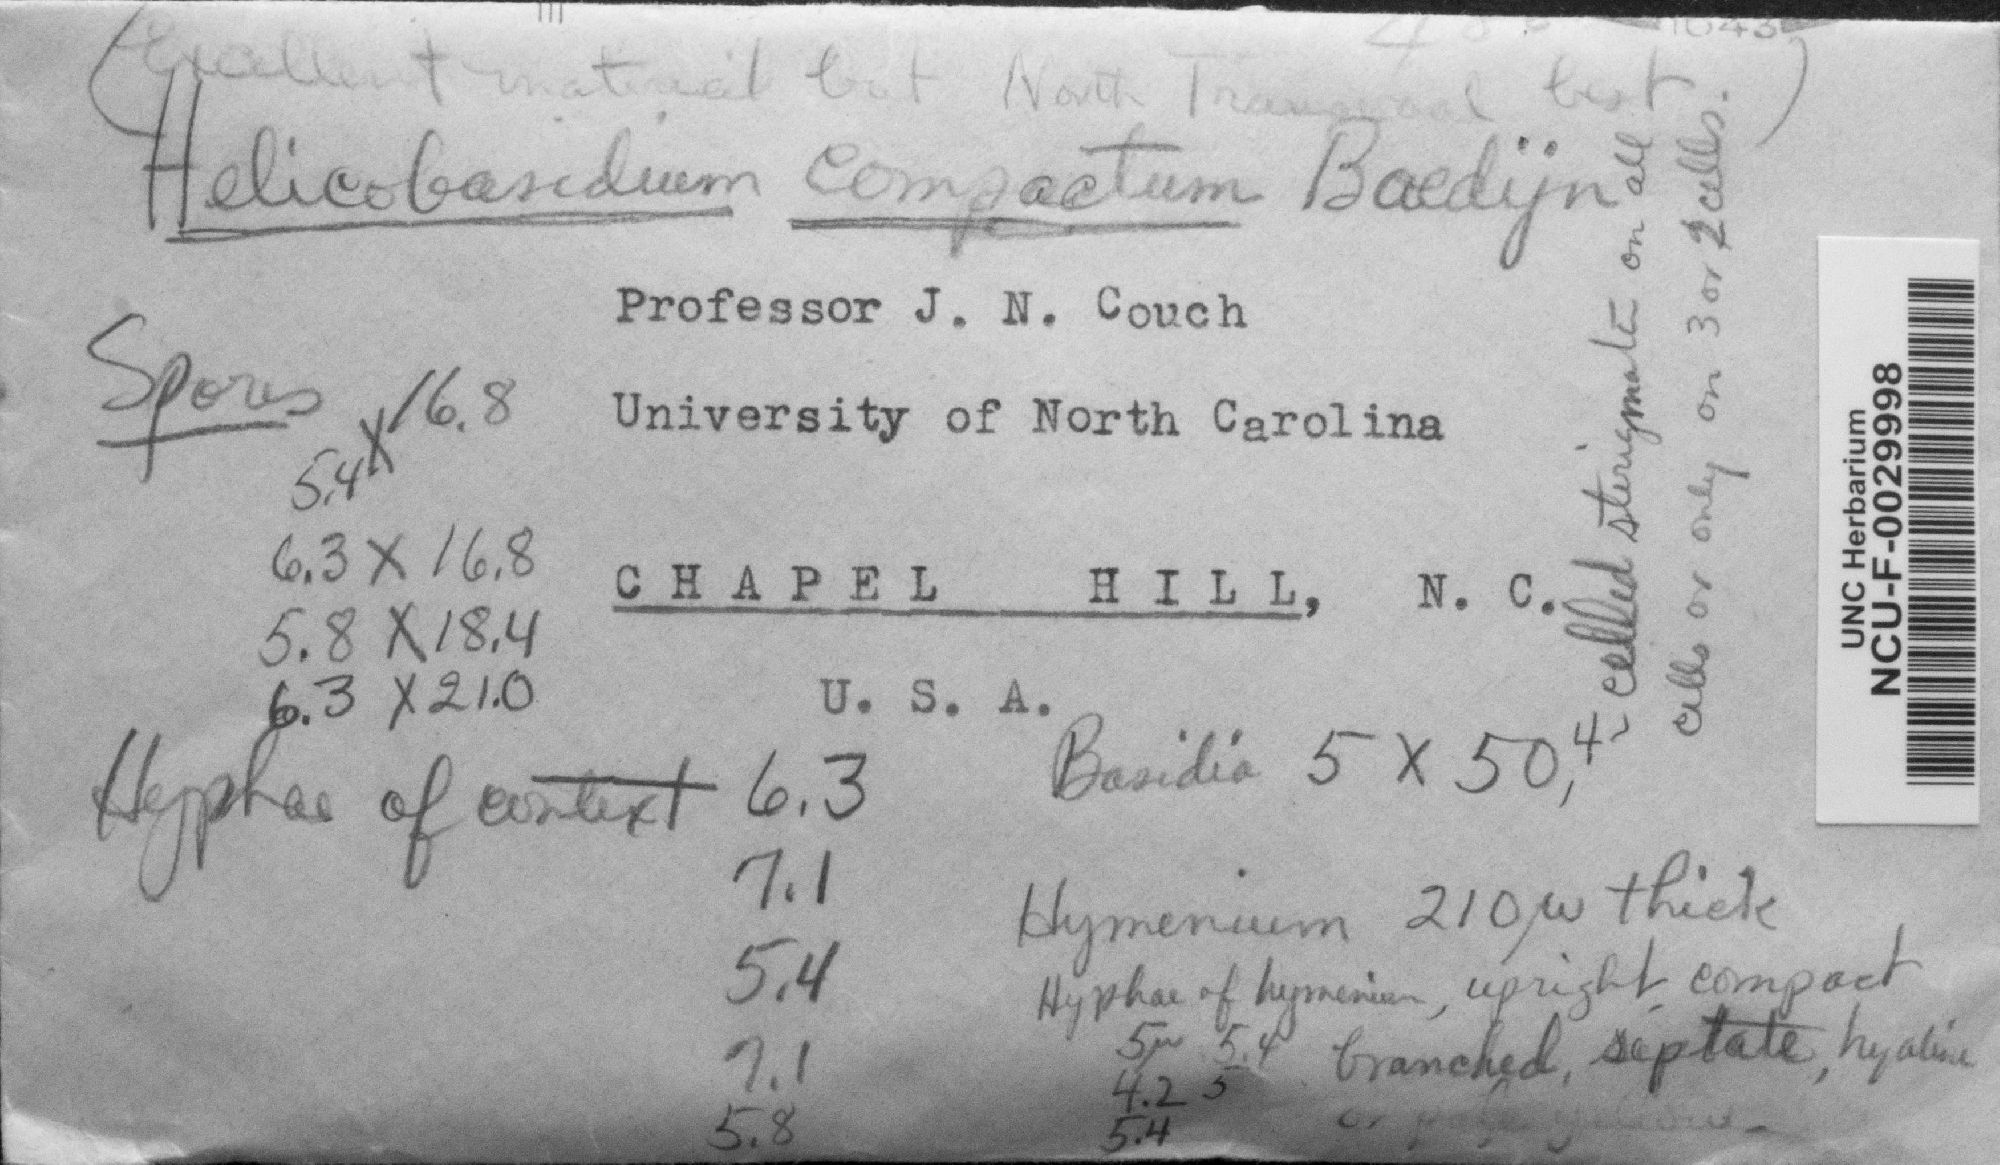 (Excellent material but North Transvaal best)
Helicobasidium compactum Boedijn
Professor J. N. Couch
University of North Carolina
CHAPEL HILL, N. C.
U. S. A.
Spores
5.4 X 16.8
6.3 X 16.8
5.8 X 18.4
6.3 X 21.0
Hyphae of context 6.3
7.1
5.4
7.1
5.8
Basidia 5 X 50, 4-celled sterigmata on all
cells or only on 3 or 2 cells.
Hymenium 210 µ thick
Hyphae of hymenium, upright, compact
branched, septate, hyaline
or pale yellow.
5µ 5.4
4.2 5
5.4
UNC Herbarium
NCU-F-0029998